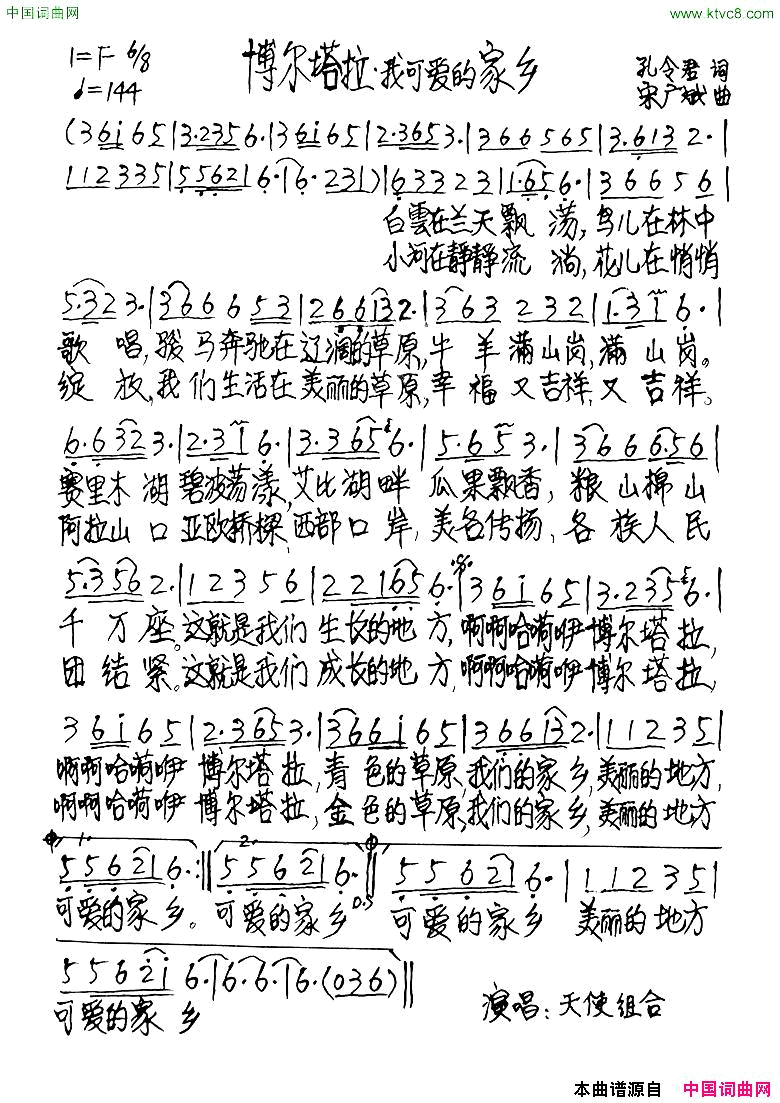 中国词曲网
www.ktvc8.com
1=F 6/8
♩=144
博尔塔拉·我可爱的家乡
孔令君 词
宋广斌 曲
(36i65|3·2356·|36i65|2·3653·|366565|3·6132·|
112335|556216·|6·231)|633323|1·656·|366656|
白雲在兰天飘荡,鸟儿在林中
小河在静静流淌,花儿在悄悄
5·323·|366653|266132·|363232|1·316·|
歌唱,骏马奔驰在辽阔的草原,牛羊满山岗,满山岗。
绽放,我们生活在美丽的草原,幸福又吉祥,又吉祥。
6·6323·|2·316·|3·3656·|5·653·|3666·56|
赛里木湖碧波荡漾,艾比湖畔瓜果飘香,粮山棉山
阿拉山口亚欧桥樑,西部口岸,美名传扬,各族人民
5·3562·|123556|221656·|36i65|3·2356·|
千万座。这就是我们生长的地方,啊啊哈嗬咿博尔塔拉,
团结紧。这就是我们成长的地方,啊啊哈嗬咿博尔塔拉,
36i65|2·3653·|366i65|366132·|11235|
啊啊哈嗬咿博尔塔拉,青色的草原,我们的家乡,美丽的地方,
啊啊哈嗬咿博尔塔拉,金色的草原,我们的家乡,美丽的地方
1. 2.
556216·:‖556216·‖556216·|112351
可爱的家乡。可爱的家乡 D.S 可爱的家乡 美丽的地方
5562i6·|6·6·|6·(036)‖
可爱的家乡
演唱:天使组合
本曲谱源自 中国词曲网